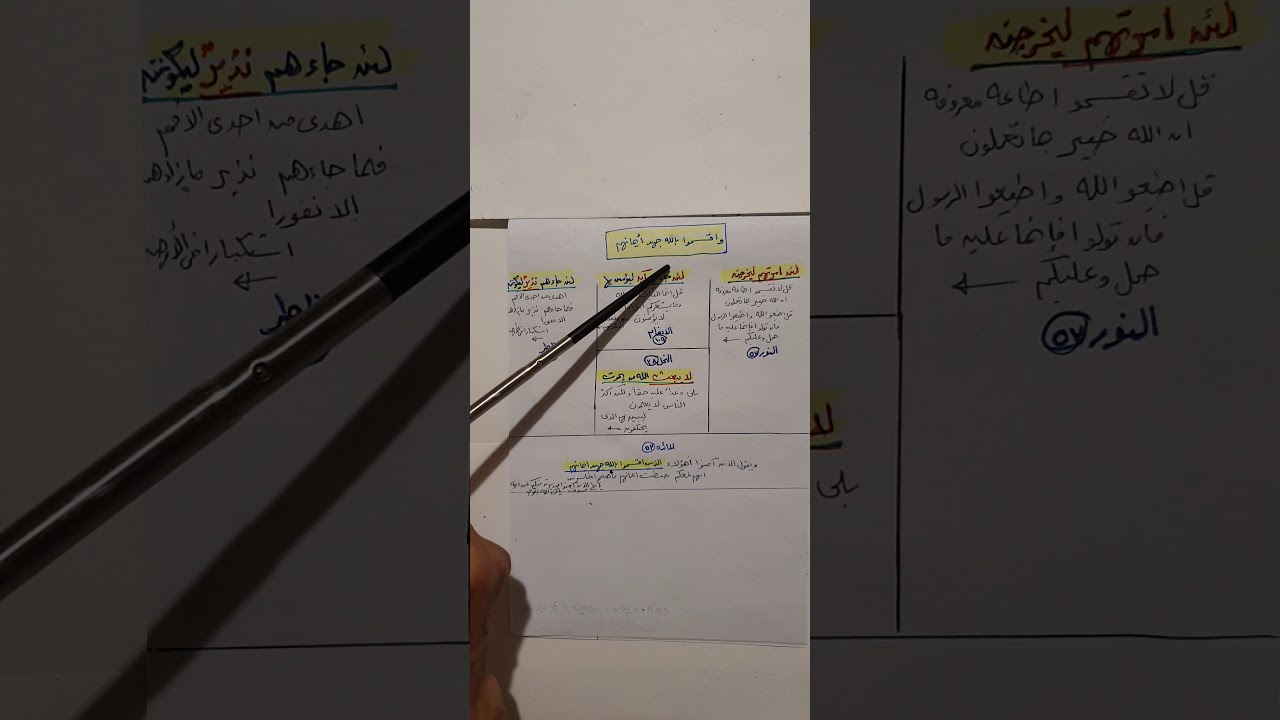 واقسموا بالله جهد أيمانهم
لئن امرتهم ليخرجنه
قل لا تقسموا طاعة معروفة
ان الله خبير بما تعملون
قل اطيعوا الله واطيعوا الرسول
فان تولوا فإنما عليه ما
حمل وعليكم
النور ٥٣
ليؤمنن بها
قل انما
وما يشعركم
لا يؤمنون
الانعام
١٠٩
لئن جاءهم نذير ليكونن
اهدى من احدى الامم
فلما جاءهم نذير ما زادهم
الا نفورا
استكبارا في الأرض
النحل ٣٨
لا يبعث الله من يموت
بلى وعدا عليه حقا ولكن اكثر
الناس لا يعلمون
ليبين لهم الذي
يختلفون
المائدة ٥٣
ويقول الذين آمنوا أهؤلاء الذين اقسموا بالله جهد ايمانهم
انهم لمعكم حبطت اعمالهم